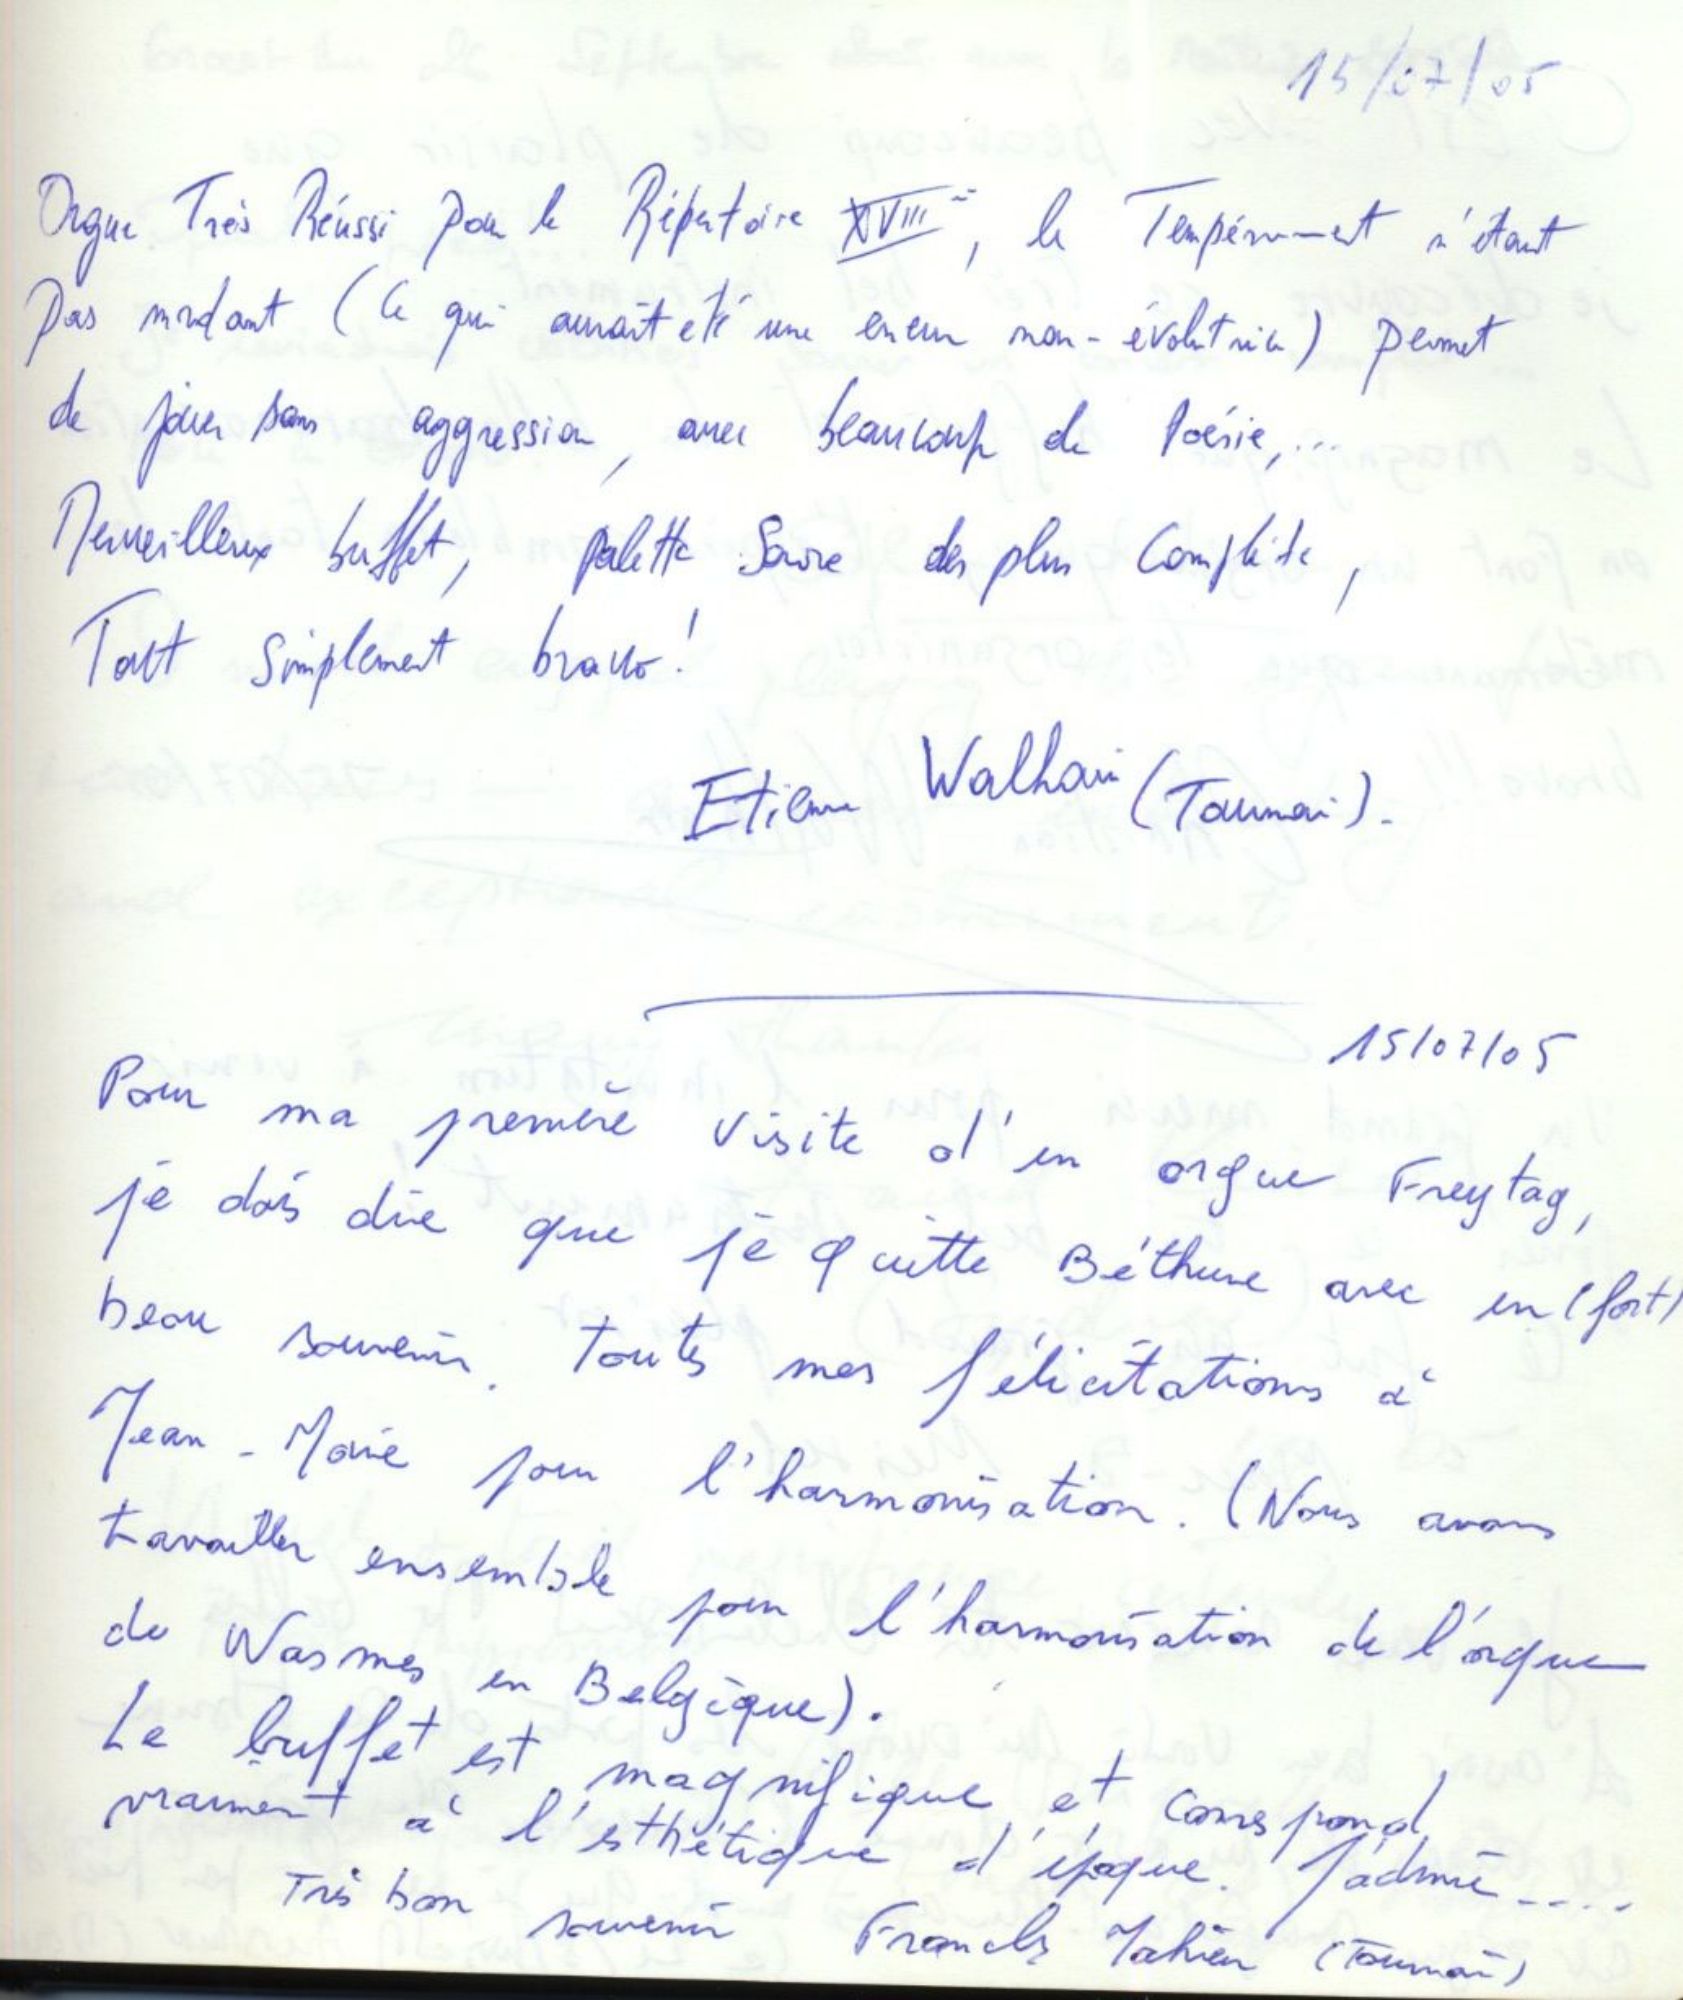 15/07/05
Orgue Très Réussi pour le Répertoire XVIIIè, le Tempérament n'étant
pas mordant (Ce qui aurait été une erreur non-évolutrice) permet
de jouer sans aggression, avec beaucoup de Poésie,...
Merveilleux buffet, palette Sonore des plus Complète,
Tout Simplement bravo!
Etienne Walhain (Tournai).
15/07/05
Pour ma première visite d'un orgue Freytag,
je dois dire que je quitte Béthune avec un (fort)
beau souvenir. Toutes mes félicitations à
Jean-Marie pour l'harmonisation. (Nous avons
travailler ensemble pour l'harmonisation de l'orgue
de Wasmes en Belgique).
Le buffet est magnifique et correspond
vraiment à l'esthétique d'époque. J'admire....
Très bon souvenir Francky (Tournai)